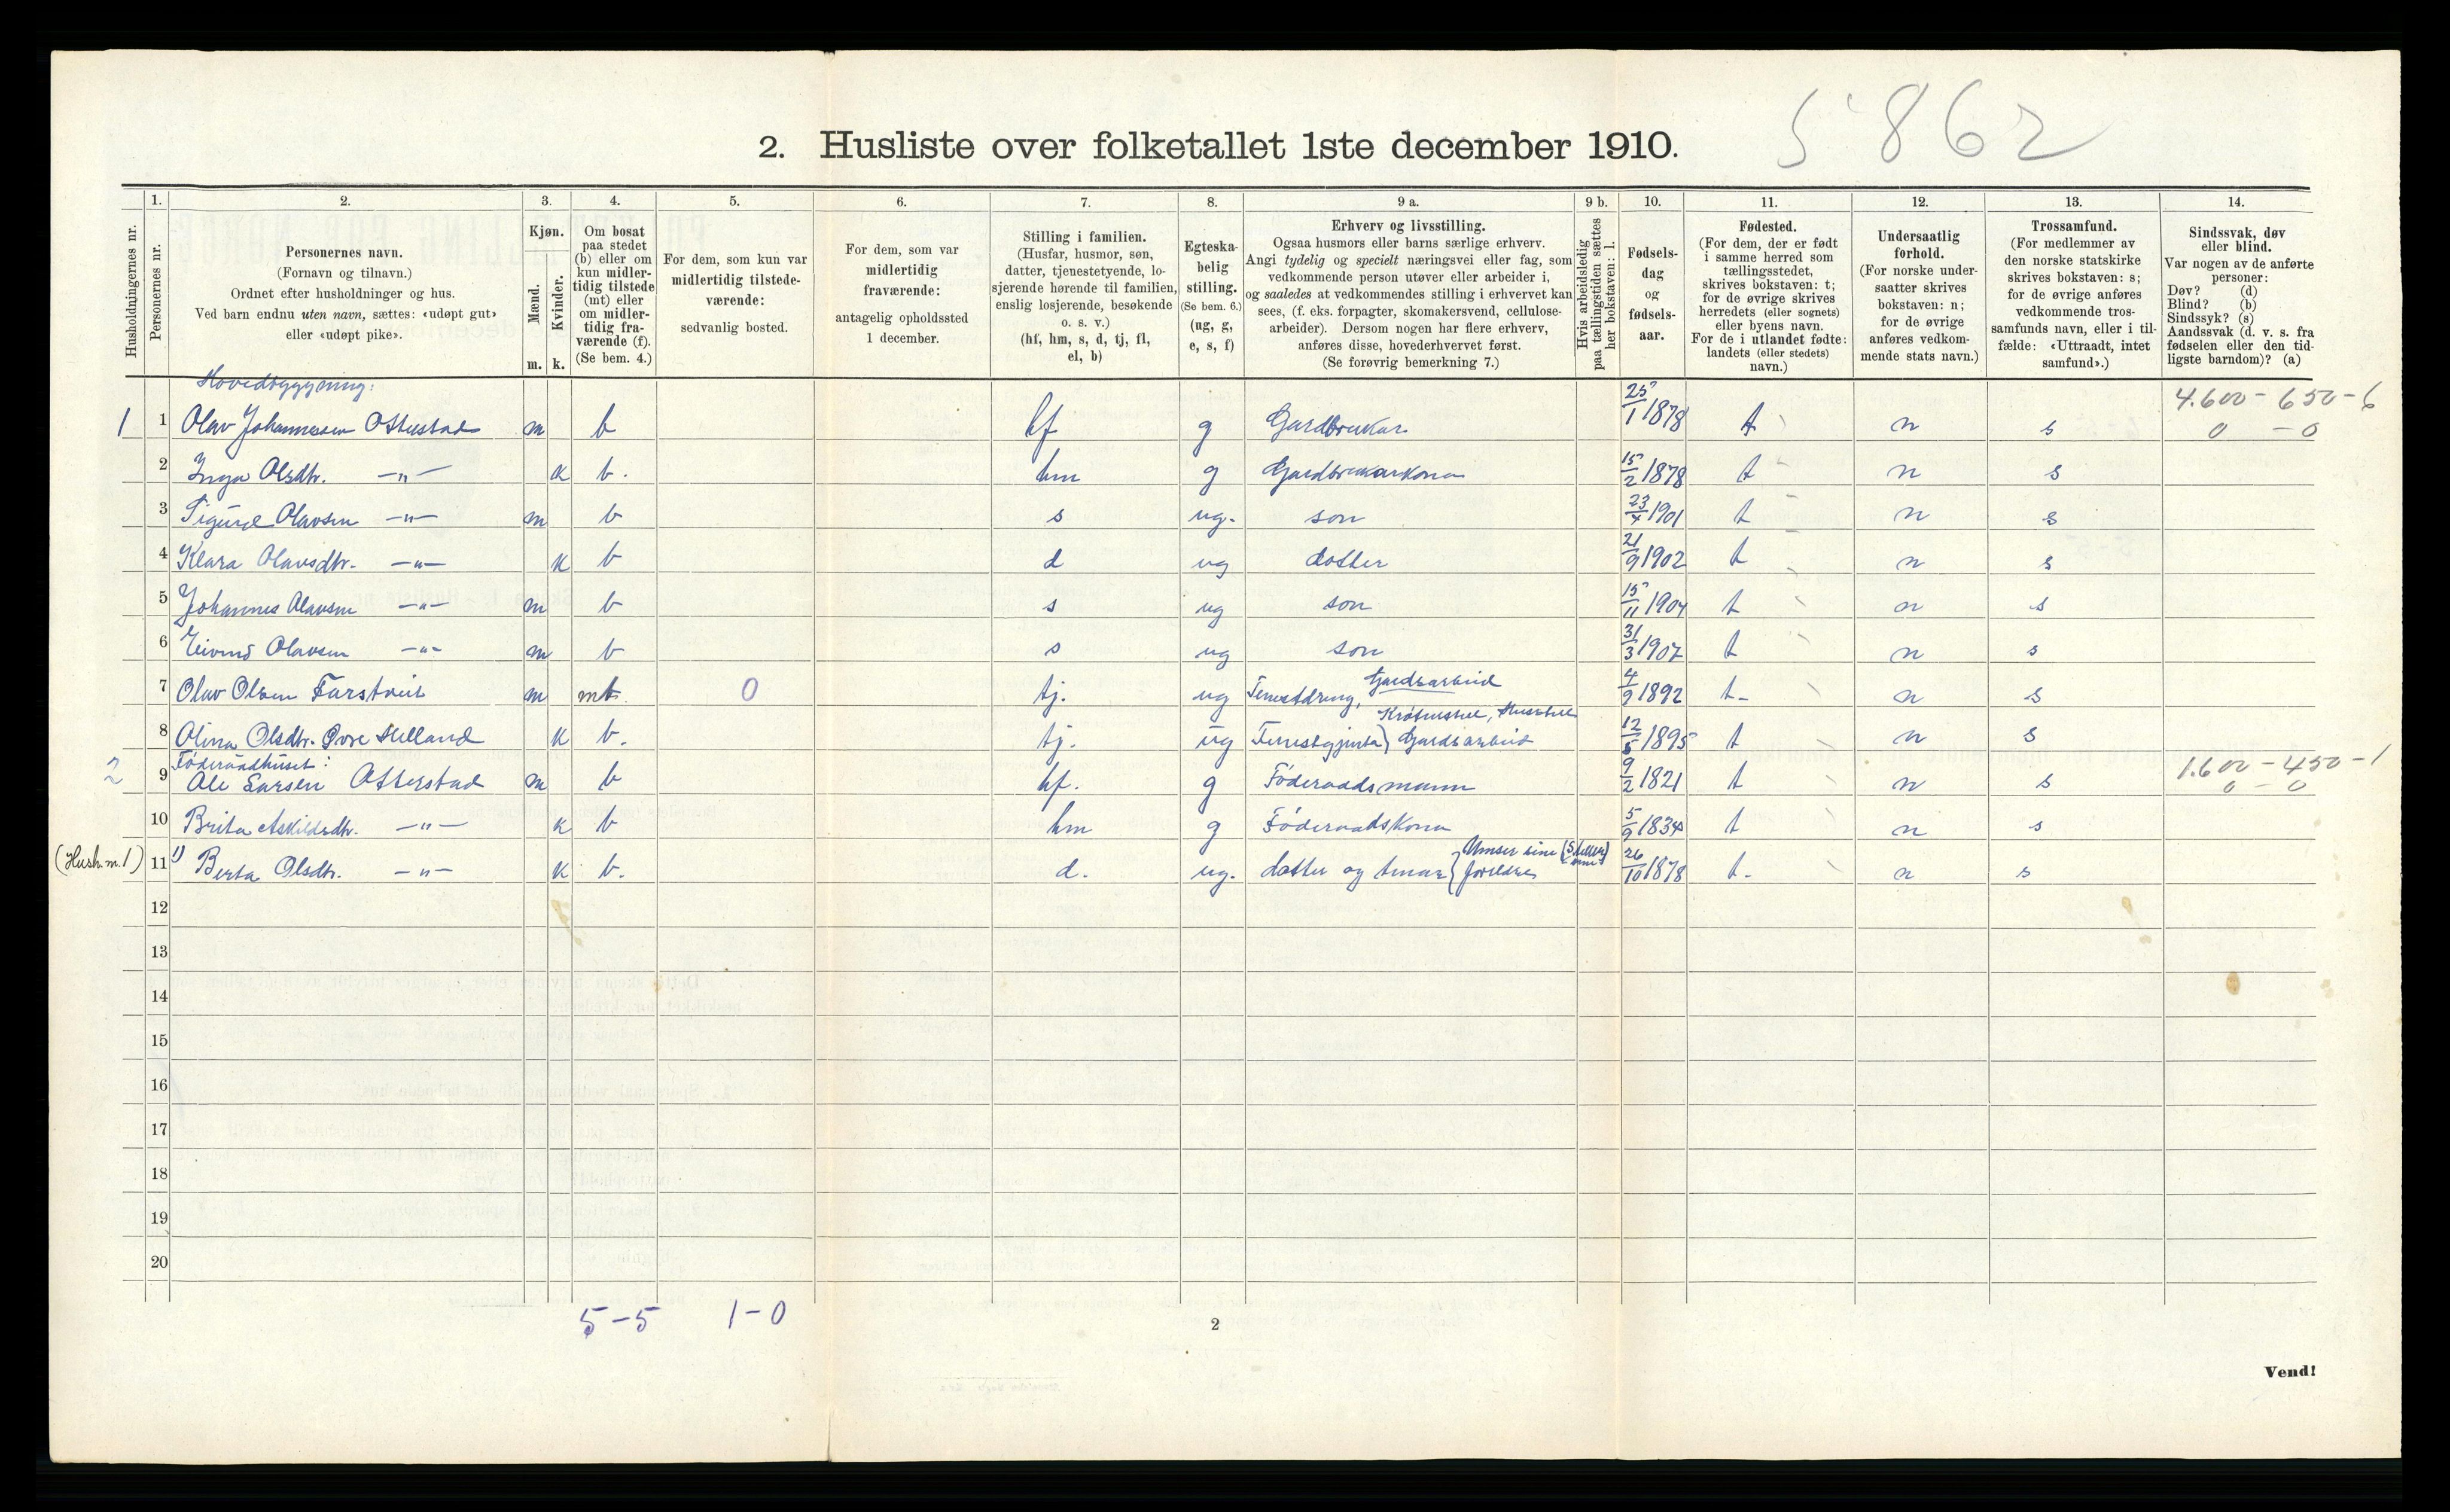 5862
2. Husliste over folketallet 1ste december 1910.
Husholdningernes nr.
1.
Personernes nr.
2.
Personernes navn.
(Fornavn og tilnavn.)
Ordnet efter husholdninger og hus.
Ved barn endnu uten navn, sættes: «udøpt gut»
eller «udøpt pike».
3.
Kjøn.
Mænd.
Kvinder.
m. k.
4.
Om bosat
paa stedet
(b) eller om
kun midler-
tidig tilstede
(mt) eller
om midler-
tidig fra-
værende (f).
(Se bem. 4.)
5.
For dem, som kun var
midlertidig tilstede-
værende:
sedvanlig bosted.
6.
For dem, som var
midlertidig
fraværende:
antagelig opholdssted
1 december.
7.
Stilling i familien.
(Husfar, husmor, søn,
datter, tjenestetyende, lo-
sjerende hørende til familien,
enslig losjerende, besøkende
o. s. v.)
(hf, hm, s, d, tj, fl,
el, b)
8.
Egteska-
belig
stilling.
(Se bem. 6.)
(ug, g,
e, s, f)
9 a.
Erhverv og livsstilling.
Ogsaa husmors eller barns særlige erhverv.
Angi tydelig og specielt næringsvei eller fag, som
vedkommende person utøver eller arbeider i,
og saaledes at vedkommendes stilling i erhvervet kan
sees, (f. eks. forpagter, skomakersvend, cellulose-
arbeider). Dersom nogen har flere erhverv,
anføres disse, hovederhvervet først.
(Se forøvrig bemerkning 7.)
9 b.
Hvis arbeidsledig
paa tællingstiden sættes
her bokstaven: l.
10.
Fødsels-
dag
og
fødsels-
aar.
11.
Fødested.
(For dem, der er født
i samme herred som
tællingsstedet,
skrives bokstaven: t;
for de øvrige skrives
herredets (eller sognets)
eller byens navn.
For de i utlandet fødte:
landets (eller stedets)
navn.)
12.
Undersaatlig
forhold.
(For norske under-
saatter skrives
bokstaven: n;
for de øvrige
anføres vedkom-
mende stats navn.)
13.
Trossamfund.
(For medlemmer av
den norske statskirke
skrives bokstaven: s;
for de øvrige anføres
vedkommende tros-
samfunds navn, eller i til-
fælde: «Uttraadt, intet
samfund».)
14.
Sindssvak, døv
eller blind.
Var nogen av de anførte
personer:
Døv? (d)
Blind? (b)
Sindssyk? (s)
Aandssvak (d. v. s. fra
fødselen eller den tid-
ligste barndom)? (a)
Hovedbyggning:
1 1 Olav Johannessen Otterstad m b hf g Gardbrukar 25/1 1878 t n s 4.600 - 650 - 6
0 - 0
2 Inga Olsdtr. -„- k b. hm g Gardbrukarkona 15/2 1878 t n s
3 Sigurd Olavsen -„- m b s ug. son 23/4 1901 t n s
4 Klara Olavsdtr. -„- k b d ug dotter 21/9 1902 t n s
5 Johannes Olavsen -„- m b s ug son 15/11 1904 t n s
6 Eivind Olavsen -„- m b s ug son 31/3 1907 t n s
7 Olav Olsen Farstveit m mt. 0 tj. ug Tenestdreng, Gardsarbeid 4/9 1892 t- n s
8 Olina Olsdtr. Øvre Helland k b. tj. ug Tenestgjenta} Krøturstel, Husstel Gardsarbeid 12/5 1895 t n s
Föderaadhuset:
2 9 Ole Larsen Otterstad m b hf. g Föderaadsmann 9/2 1821 t n s 1.600 - 450 - 1
0 - 0
10 Brita Askildsdtr. -„- k b hm g Föderaadskona 5/9 1834 t n s
(Hush. m. 1) 11 1) Berta Olsdtr. -„- k b. d. ug. dotter og { Umser sine foreldre 26/10 1878 t- n s
12
13
14
15
16
17
18
19
20
5-5 1-0
2
Vend!